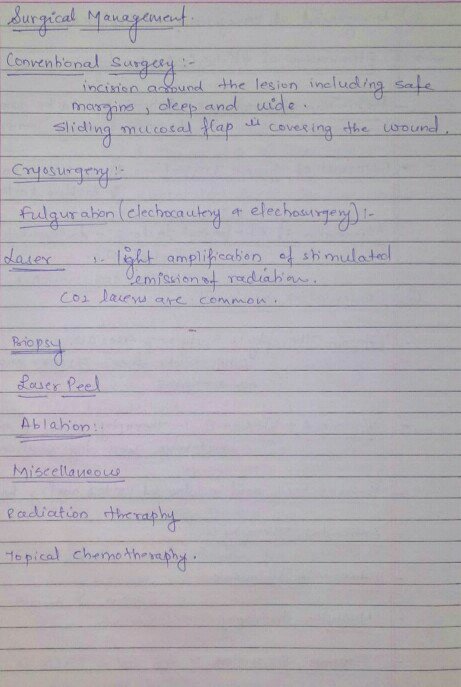 Surgical Management.
Conventional Surgery :-
incision around the lesion including safe
margins, deep and wide.
sliding mucosal flap covering the wound.
Cryosurgery :-
Fulguration (electrocautery & electrosurgery) :-
Laser :- light amplification of stimulated
emission of radiation.
CO2 lasers are common.
Biopsy
Laser Peel
Ablation :-
Miscellaneous
Radiation theraphy
Topical chemotheraphy.